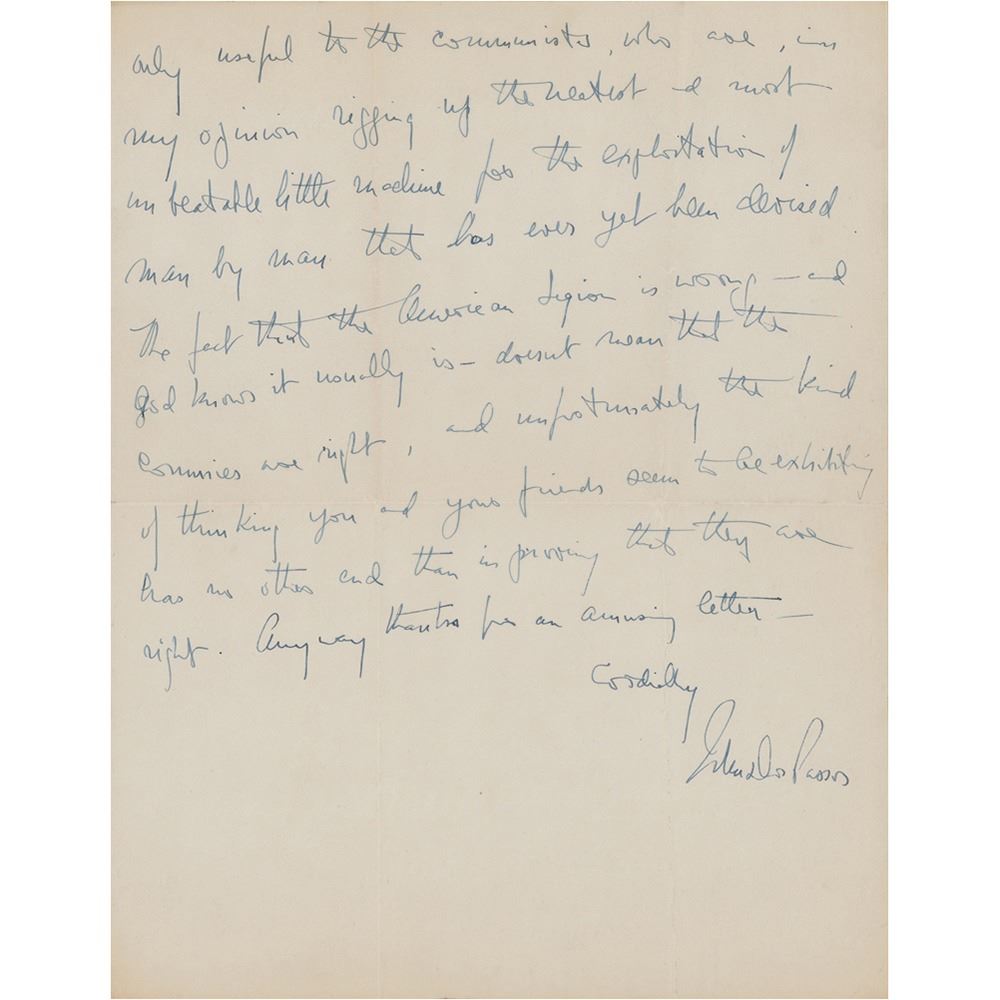 only useful to the communists, who are, in
my opinion rigging up the neatest and most
unbeatable little machine for the exploitation of
man by man that has ever yet been devised
The fact that the American Legion is wrong — and
God knows it usually is — doesnt mean that the
commies are right, and unfortunately the kind
of thinking you and your friends seem to be exhibiting
has no other end than in proving that they are
right. Anyway thanks for an amusing letter —
Cordially
John Dos Passos